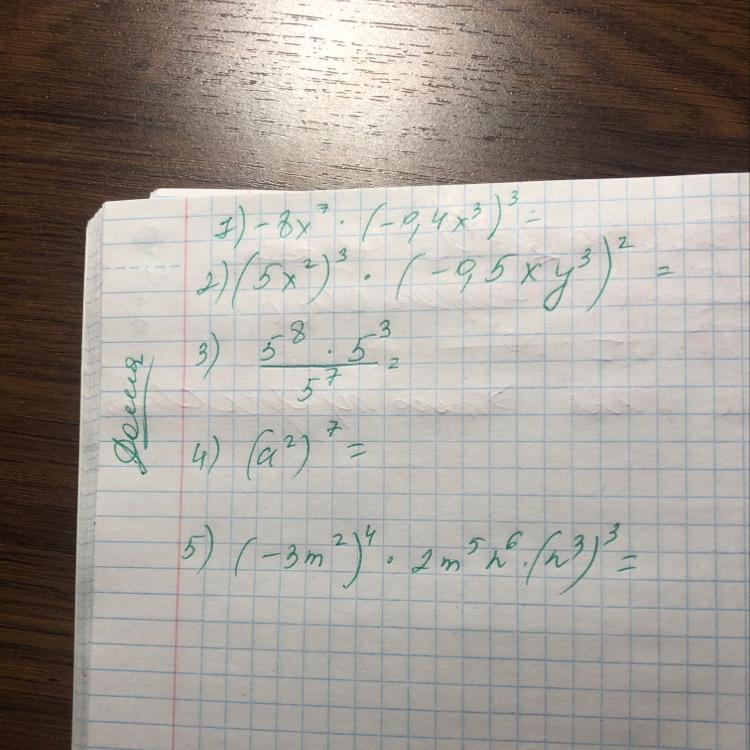 1) -8x⁷ · (-0,4x³)³ =
2) (5x²)³ · (-0,5xy³)² =
3) 5⁸ · 5³ / 5⁷ =
4) (a²)⁷ =
5) (-3m²)⁴ · 2m⁵n⁶ · (n³)³ =